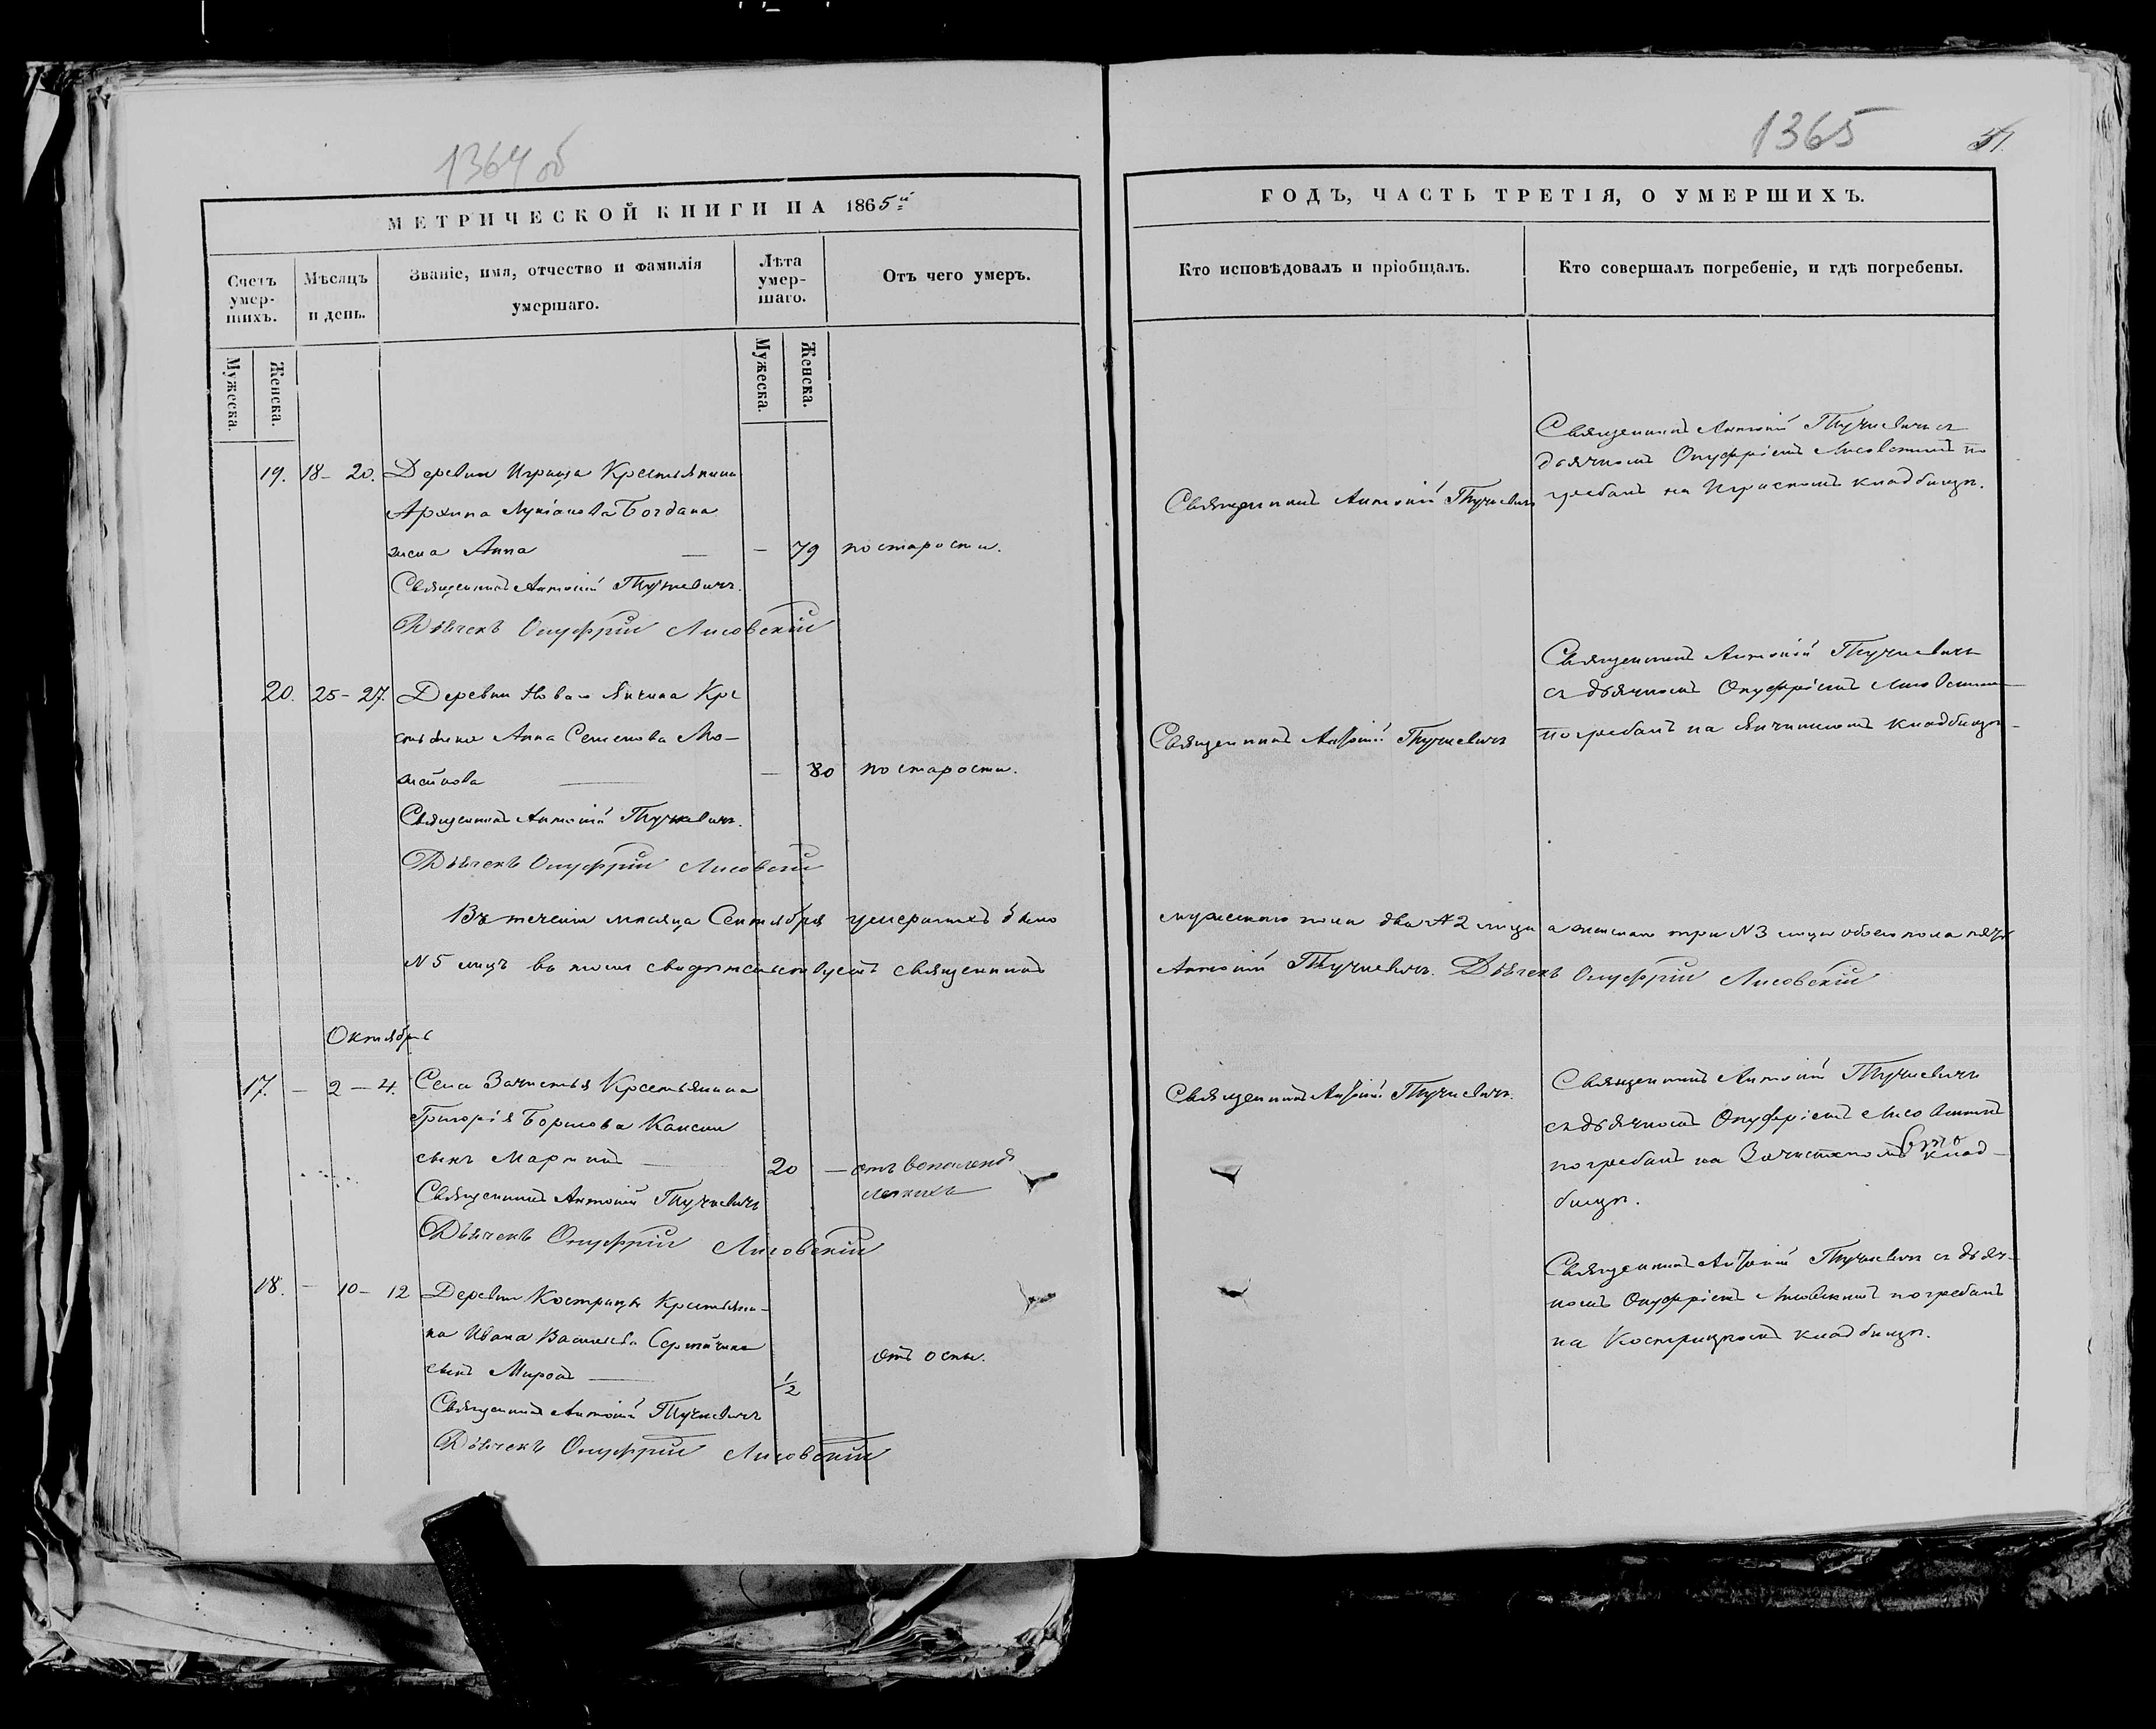 1364 об
МЕТРИЧЕСКОЙ КНИГИ НА 1865й
Счетъ умер-шихъ.
Мѣсяцъ и день.
Званіе, имя, отчество и фамилія умершаго.
Лѣта умер-шаго.
Отъ чего умеръ.
Мужеска.
Женска.
Мужеска.
Женска.
19. 18- 20. Деревни Играща Крестьянина
Архипа Лукіанова Богдана
жена Анна — — 79 по старости.
Священникъ Антоній Тычкевичъ.
Дьячекъ Онуфрій Лисовскій
20. 25- 27. Деревни Новаго Янчина Кре
стьянка Анна Семенова Мо-
— 80 по старости.
Священникъ Антоній Тычкевичъ.
Дьячекъ Онуфрій Лисовскій
Въ теченіи мѣсяца Сентября умершихъ было
N5 лицъ въ томъ свидѣтельствуетъ священникъ
Октябрь
17. — 2 — 4. Села Зачистья Крестьянина
Григорія Борисова
сынъ Мартинъ 20 — отъ воспаленія
легкихъ
Священникъ Антоній Тычкевичъ
Дьячекъ Онуфрій Лисовскій
18. — 10 — 12 Деревни Кострицы Крестьяни-
на Ивана Васильева
сынъ Миронъ — 1/2 отъ оспы.
Священникъ Антоній Тычкевичъ
Дьячекъ Онуфрій Лисовскій
1365
ГОДЪ, ЧАСТЬ ТРЕТІЯ, О УМЕРШИХЪ.
Кто исповѣдовалъ и пріобщалъ.
Кто совершалъ погребеніе, и гдѣ погребены.
Священникъ Антоній Тычкевичъ
Священникъ Антоній Тычкевичъ съ
дьячкомъ Онуфріемъ Лисовскимъ по
гребалъ на Играскомъ кладбищѣ.
Священникъ Антоній Тычкевичъ
Священникъ Антоній Тычкевичъ
съ дьячкомъ Онуфріемъ Лисовскимъ
погребалъ на Янчинскомъ кладбищѣ
мужеского пола два N2 лица а женскаго три N3 лица обоего пола пять
Антоній Тычкевичъ. Дьячекъ Онуфрій Лисовскій
Священникъ Антоній Тычкевичъ.
Священникъ Антоній Тычкевичъ
съ дьячкомъ Онуфріемъ Лисовскимъ
погребалъ на Зачистскомъ клад-
бищѣ.
Священникъ Антоній Тычкевичъ съ дьяч-
комъ Онуфріемъ Лисовскимъ погребалъ
на Кострицкомъ кладбищѣ.